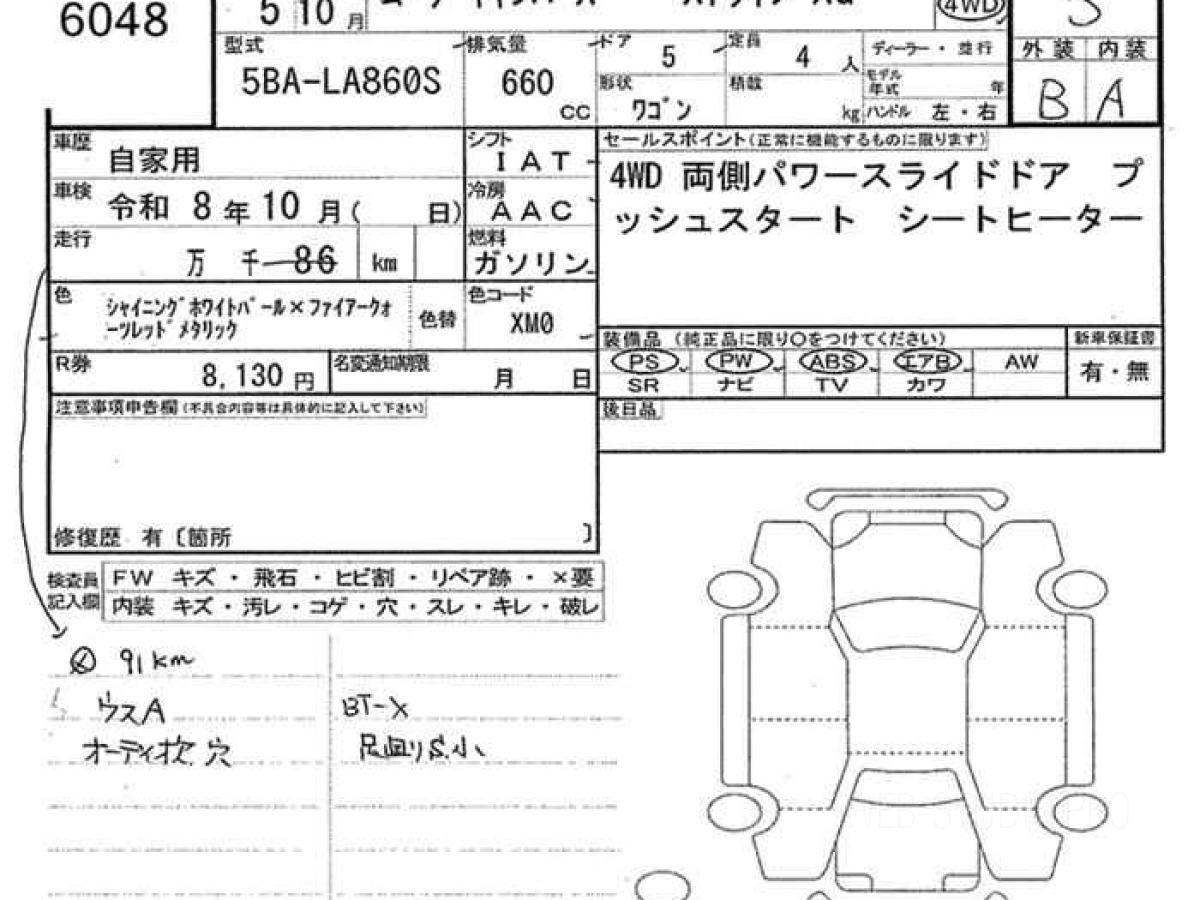 6048
5 10 月
4WD
S
型式
5BA-LA860S
排気量
660
CC
ドア
5
定員
4
人
ディーラー・並行
モデル
年式
年
ハンドル 左・右
形状
ワゴン
積載
kg
外装 内装
B A
車歴
自家用
シフト
IAT
車検
令和 8年10月( 日)
冷房
AAC
走行
万 千 86 km
燃料
ガソリン
色
シャイニングホワイトパール×ファイアークォ
ーツレッドメタリック
色替
色コード
XM0
R券
8,130 円
名変通知期限
月 日
セールスポイント(正常に機能するものに限ります)
4WD 両側パワースライドドア プ
ッシュスタート シートヒーター
装備品 (純正品に限り○をつけてください)
新車保証書
PS PW ABS エアB AW
SR ナビ TV カワ
有・無
後日品
注意事項申告欄(不具合内容等は具体的に記入して下さい)
修復歴 有〔箇所 〕
検査員
記入欄
FW キズ・飛石・ヒビ割・リペア跡・×要
内装 キズ・汚レ・コゲ・穴・スレ・キレ・破レ
91km
ウスA
オーディオ欠 穴
BT-X
足廻りS小